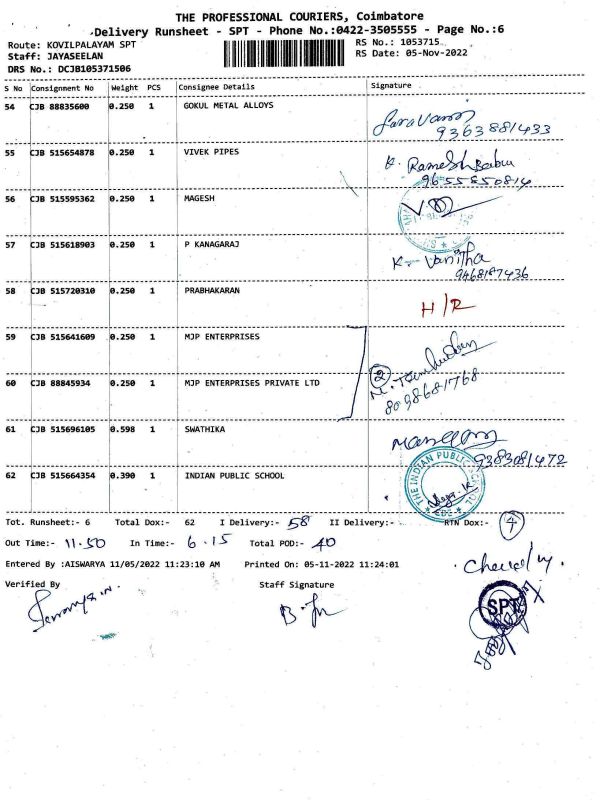 THE PROFESSIONAL COURIERS, Coimbatore
Delivery Runsheet - SPT - Phone No.:0422-3505555 - Page No.:6
Route: KOVILPALAYAM SPT
RS No.: 1053715
Staff: JAYASEELAN
RS Date: 05-Nov-2022
DRS No.: DCJB105371506
S No Consignment No Weight PCS Consignee Details Signature
54 CJB 88835600 0.250 1 GOKUL METAL ALLOYS
Saravanan
9363881433
55 CJB 515654878 0.250 1 VIVEK PIPES
K. Ramesh Babu
9655850814
56 CJB 515595362 0.250 1 MAGESH
57 CJB 515618903 0.250 1 P KANAGARAJ
K. Vanitha
9468187436
58 CJB 515720310 0.250 1 PRABHAKARAN
H/R
59 CJB 515641609 0.250 1 MJP ENTERPRISES
2
60 CJB 88845934 0.250 1 MJP ENTERPRISES PRIVATE LTD
8098681768
61 CJB 515696105 0.598 1 SWATHIKA
9383081472
62 CJB 515664354 0.390 1 INDIAN PUBLIC SCHOOL
THE INDIAN PUBLIC SCHOOL
CBE
Tot. Runsheet:- 6 Total Dox:- 62 I Delivery:- 58 II Delivery:- RTN Dox:- 4
Out Time:- 11.50 In Time:- 6.15 Total POD:- 40
Entered By :AISWARYA 11/05/2022 11:23:10 AM Printed On: 05-11-2022 11:24:01
Verified By Staff Signature
SPT